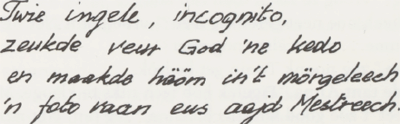 Twie ingele, incognito,
zeukde veur God 'ne kedo
en maakde hööm in't mörgeleech
'n foto vaan eus aajd Mestreech.